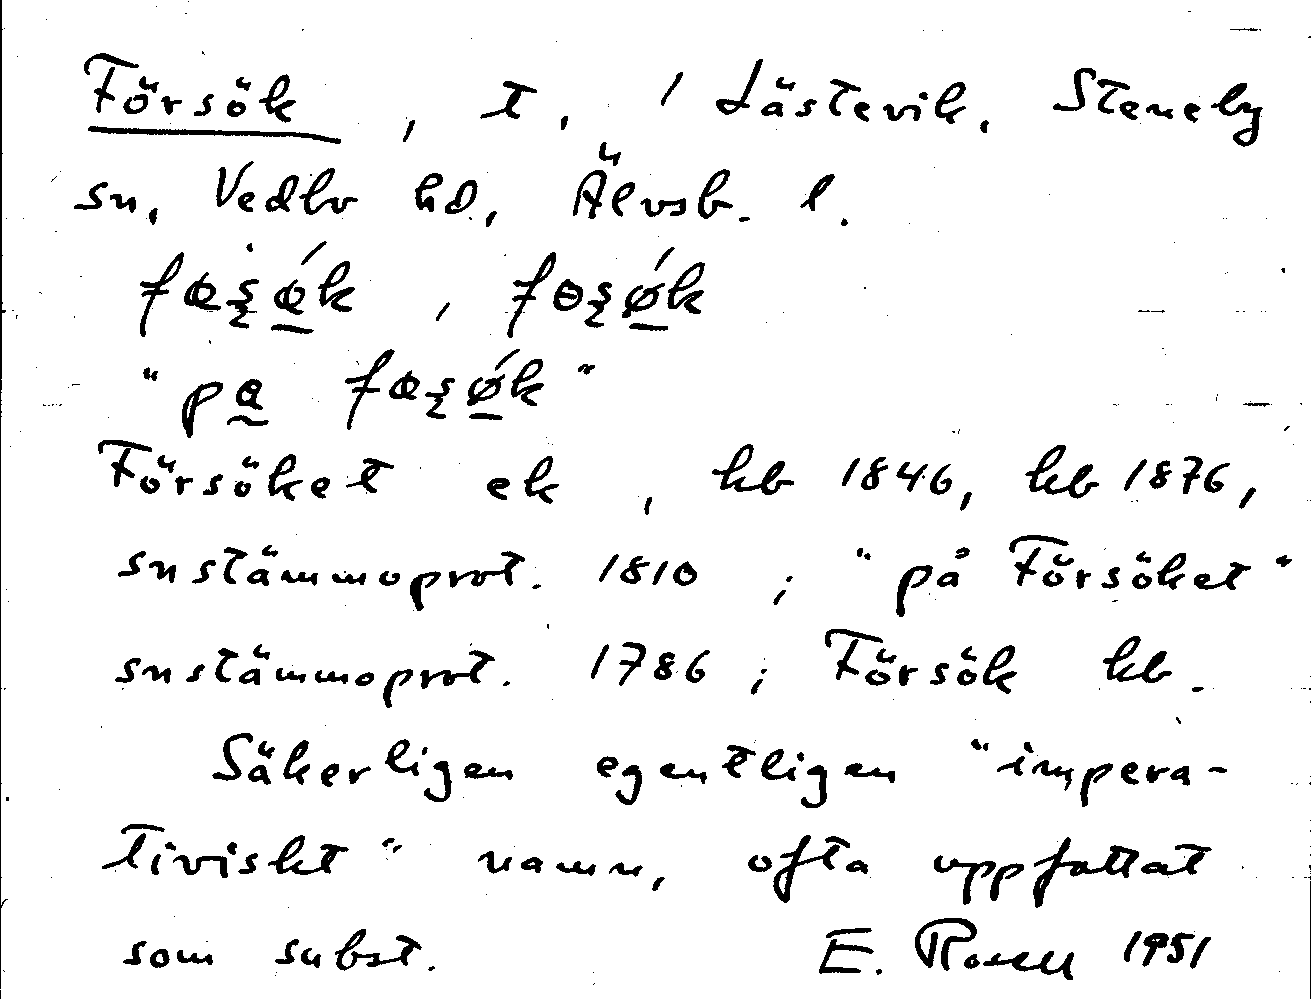 Försök, t. / Lästevik, Steneby
sn, Vedbo hd, Älvsb. l.
"på
Försöket ek, kb 1846, kb 1876,
snstämmoprot. 1810; "på Försöket"
snstämmoprot. 1786; Försök kb.
Säkerligen egentligen "impera-
tiviskt" namn, ofta uppfattat
som subst. E. Rosell 1951